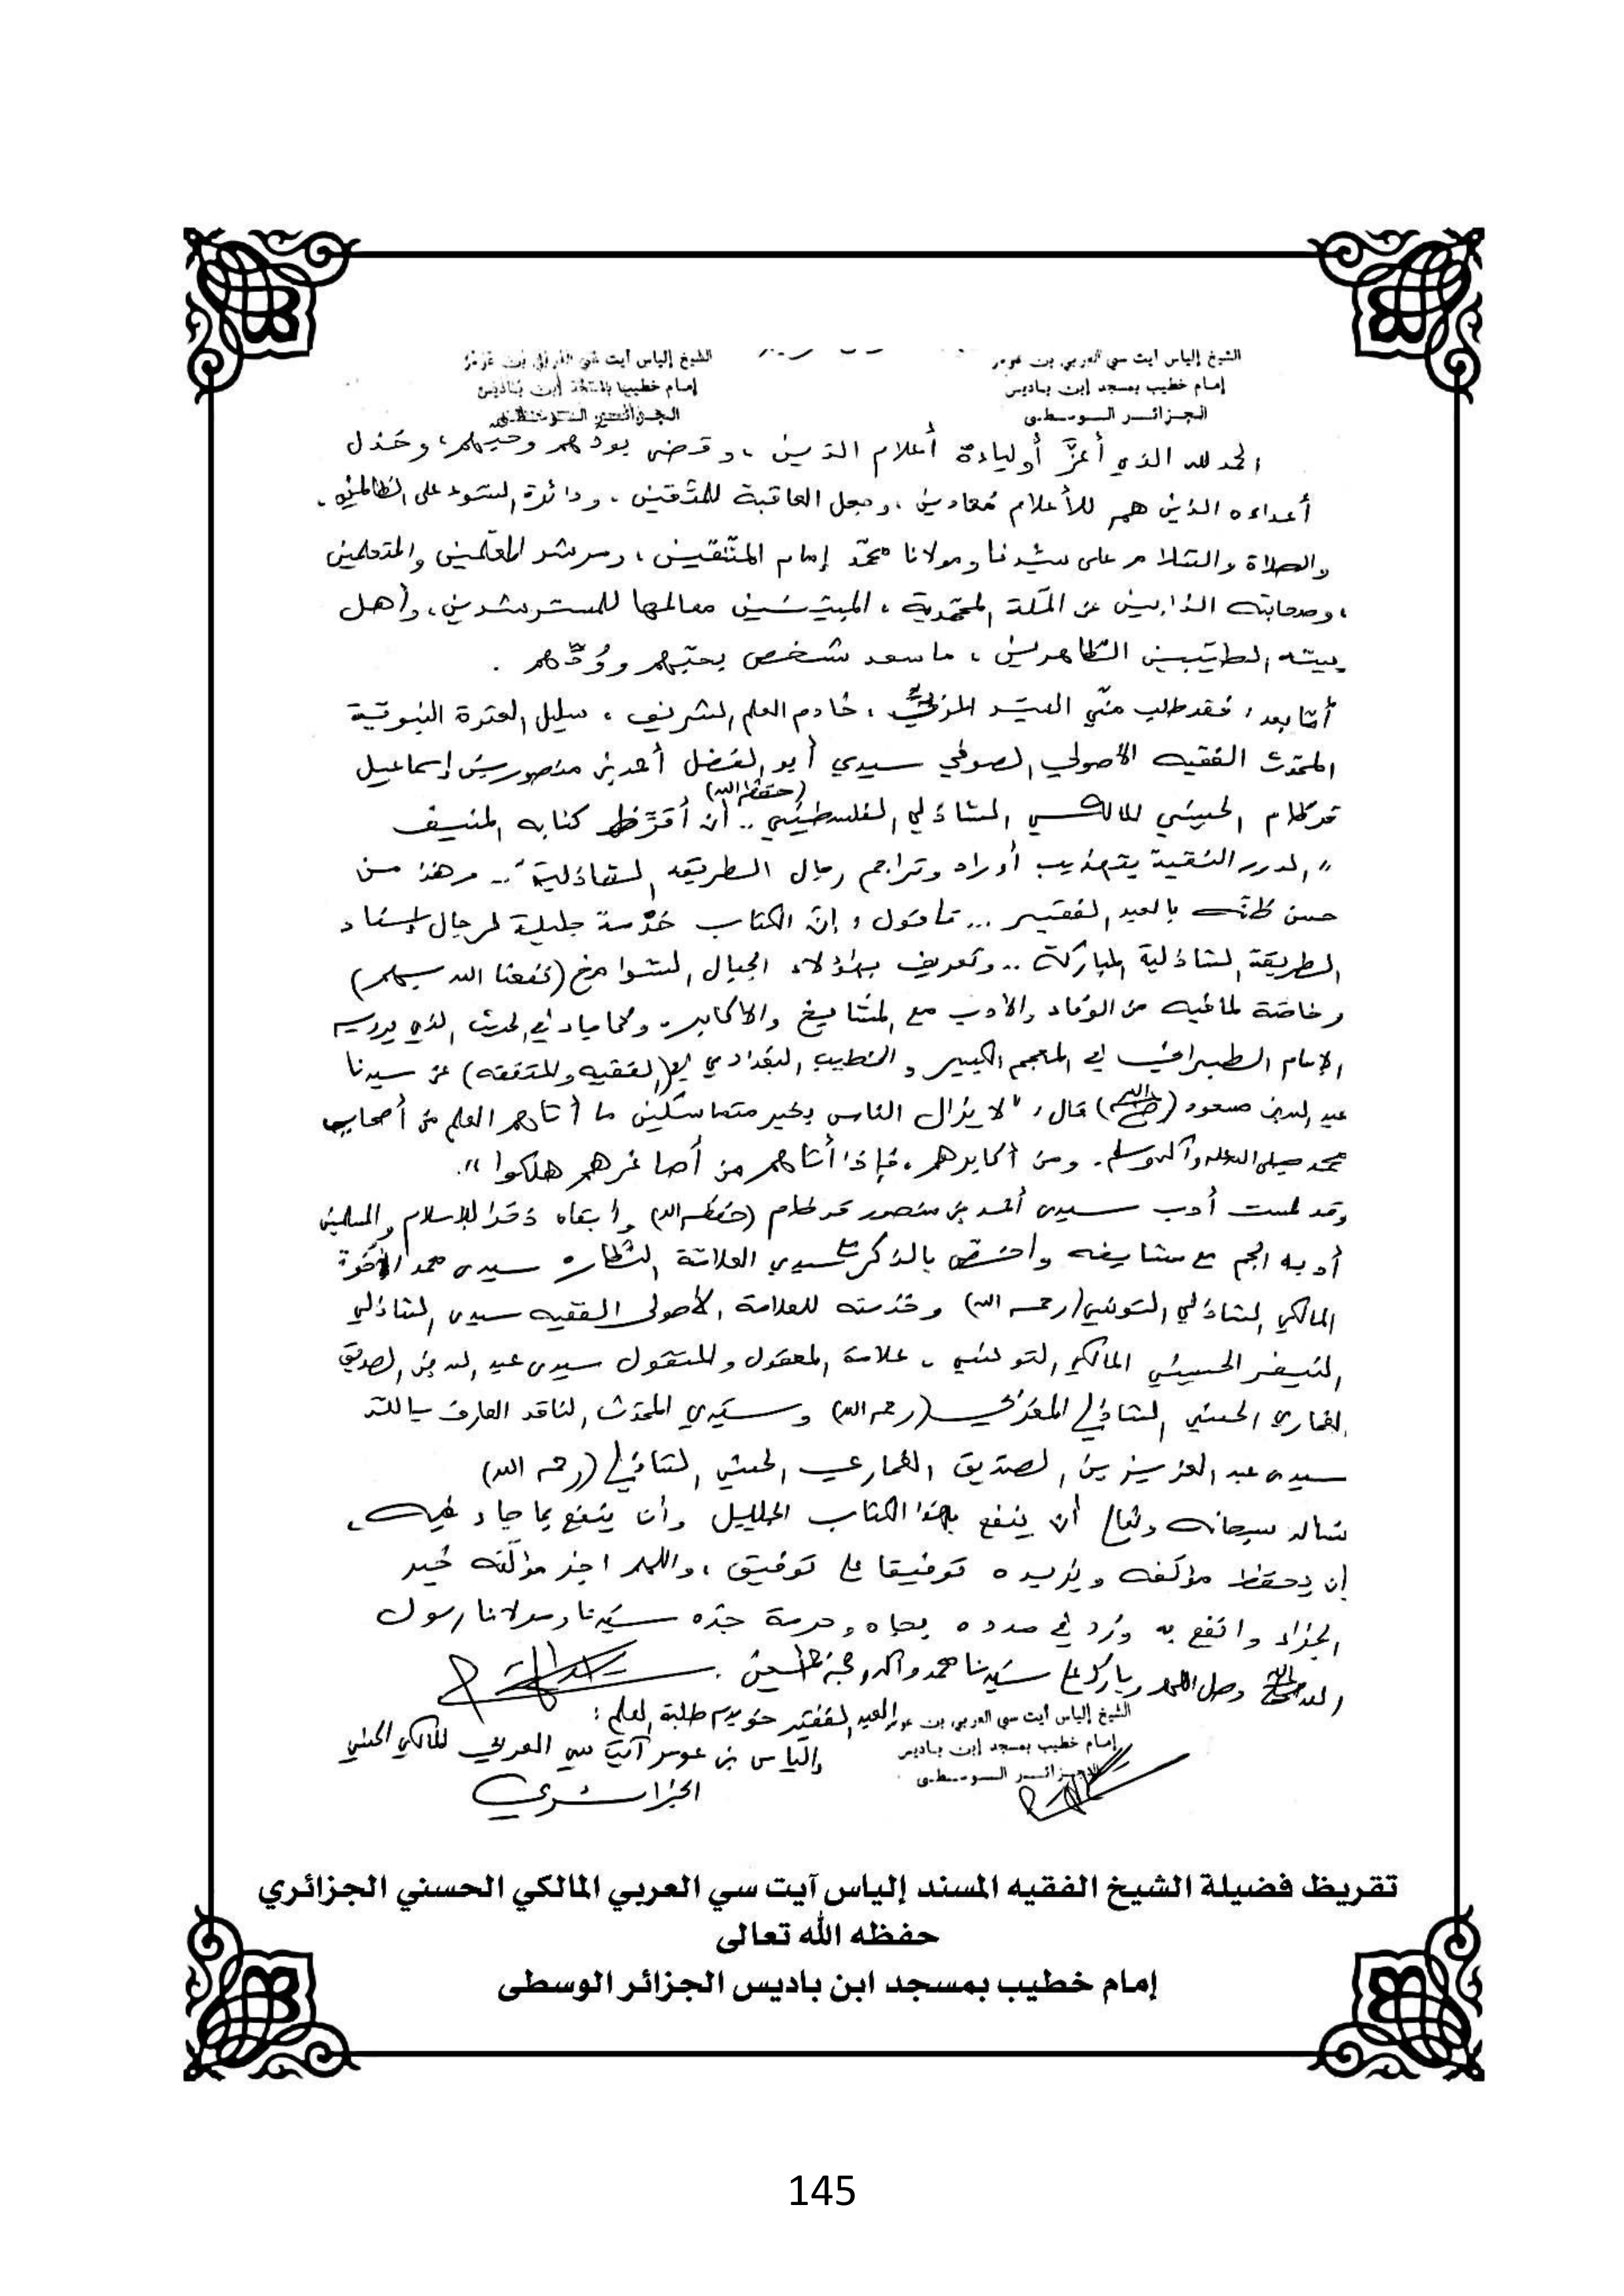 الشيخ إلياس آيت سي العربي بن عومر
إمام خطيب بمسجد ابن باديس
الجزائر الوسطى
الشيخ إلياس آيت سي العربي بن عومر
إمام خطيب بمسجد ابن باديس
الجزائر الوسطى
الحمد لله الذي أعزَّ أولياءه أعلام الدين ، وقرض بودّهم وحبهم، وخذل
أعداءه الذين هم للأعلام مُعادين ، وجعل العاقبة للمتّقين ، ودائرة السّوء على الظالمين .
والصلاة والسّلام على سيّدنا ومولانا محمّد إمام المتّقين ، ومرشد المعلّمين والمتعلمين
، وصحابته الذابين عن الملّة المحمّدية ، المبيّنين معالمها للمسترشدين ، وأهل
بيته الطيّبين الطّاهرين ، ما سعد شخص بحبّهم وودّهم .
أمّا بعد ، فقد طلب منّي السيّد المربّي ، خادم العلم الشريف ، سليل العترة النبويّة
المحدّث الفقيه الأصولي الصوفي سيدي أبو الفضل أحمد بن منصور بن إسماعيل
قرطام الحسيني المالكي الشاذلي الفلسطيني (حفظه الله) .. أن أقرّظ كتابه المنيف
" الدرر النقية بتهذيب أوراد وتراجم رجال الطريقة الشاذلية " .. وهذا من
حسن ظنّه بالعبد الفقير ... فأقول ، إنّ الكتاب خدْمة جليلة لرجال إسناد
الطريقة الشاذلية المباركة .. وتعريف بهؤلاء الجبال الشوامخ (نفعنا الله بهم)
وخاصّة لما فيه من الوفاء والأدب مع المشايخ والأكابر . وكما جاء في الحديث الذي يرويه
الإمام الطبراني في المعجم الكبير والخطيب البغدادي في (الفقيه والمتفقه) عن سيدنا
عبد الله بن مسعود (رضي الله عنه) قال ، "لا يزال الناس بخير متماسكين ما أتاهم العلم من أصحاب
محمد صلى الله عليه وآله وسلم . ومن أكابرهم ، فإذا أتاهم من أصاغرهم هلكوا ".
وقد لمست أدب سيدي أحمد بن منصور قرطام (حفظه الله) وأبقاه ذخرا للإسلام والمسلمين
أدبه الجم مع مشايخه وأختصّ بالذكر سيدي العلامّة النظّار سيدي محمد الأخوة
المالكي الشاذلي التونسي (رحمه الله) وخدمته للعلامة الأصولي الفقيه سيدي الشاذلي
النيفر الحسيني المالكي التونسي ، علامة المعقول والمنقول سيدي عبد الله بن الصديق
الغماري الحسني الشاذلي المغربي (رحمه الله) وسيّدي المحدّث الناقد العارف بالله
سيدي عبد العزيز بن الصدّيق الغماري الحسني الشاذلي (رحمه الله)
نسأله سبحانه وتعالى أن ينفع بهذا الكتاب الجليل وأن ينفع بما جاء فيه ،
أن يحفظ مؤلفه ويزيده توفيقا على توفيق ، واللهم اجز مؤلّفه خير
الجزاء وانفع به وزد في مدده بجاه وحرمة جدّه سيّدنا ومولانا رسول
الله صلى الله عليه وسلم وصل اللهم وبارك على سيّدنا محمد وآله وصحبه أجمعين .
العبد الفقير خويدم طلبة العلم :
الشيخ إلياس آيت سي العربي بن عومر
إمام خطيب بمسجد ابن باديس
الجزائر الوسطى
إلياس بن عومر آيت سي العربي المالكي الحسني
الجزائري
تقريظ فضيلة الشيخ الفقيه المسند إلياس آيت سي العربي المالكي الحسني الجزائري
حفظه الله تعالى
إمام خطيب بمسجد ابن باديس الجزائر الوسطى
145